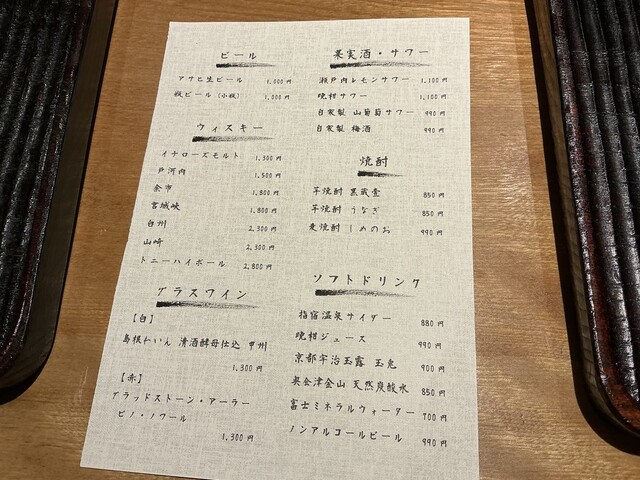 ビール
アサヒ生ビール 1,000円
瓶ビール（小瓶） 1,000円
ウィスキー
イチローズモルト 1,300円
戸河内 1,500円
余市 1,800円
宮城峡 1,800円
白州 2,300円
山崎 2,300円
トニーハイボール 2,800円
グラスワイン
【白】
島根わいん 清酒酵母仕込 甲州
1,300円
【赤】
グラッドストーン・アーラー
ピノ・ノワール
1,300円
果実酒・サワー
瀬戸内レモンサワー 1,100円
晩柑サワー 1,100円
自家製 山葡萄サワー 990円
自家製 梅酒 990円
焼酎
芋焼酎 黒蔵壹 850円
芋焼酎 うなぎ 850円
麦焼酎 しめのお 990円
ソフトドリンク
指宿温泉サイダー 880円
晩柑ジュース 990円
京都宇治玉露 玉兎 900円
奥会津金山 天然炭酸水 850円
富士ミネラルウォーター 700円
ノンアルコールビール 990円